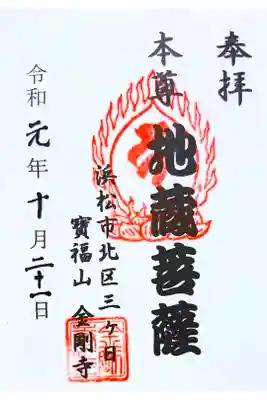 奉拝
本尊
地蔵菩薩
浜松市北区三ケ日
寶福山 金剛寺
令和元年十月二十一日